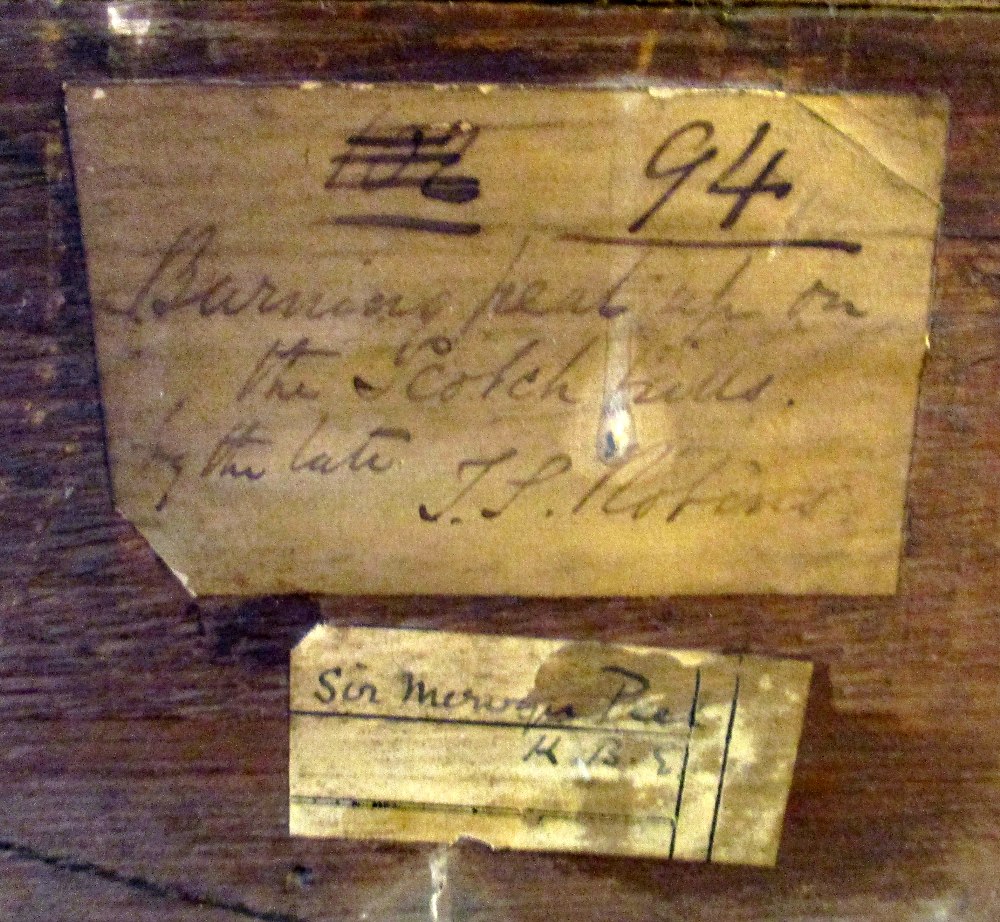 94
Burning peat up on
the Scotch hills.
by the late T. S. Robins
Sir Merwyn Peel
K.B.E